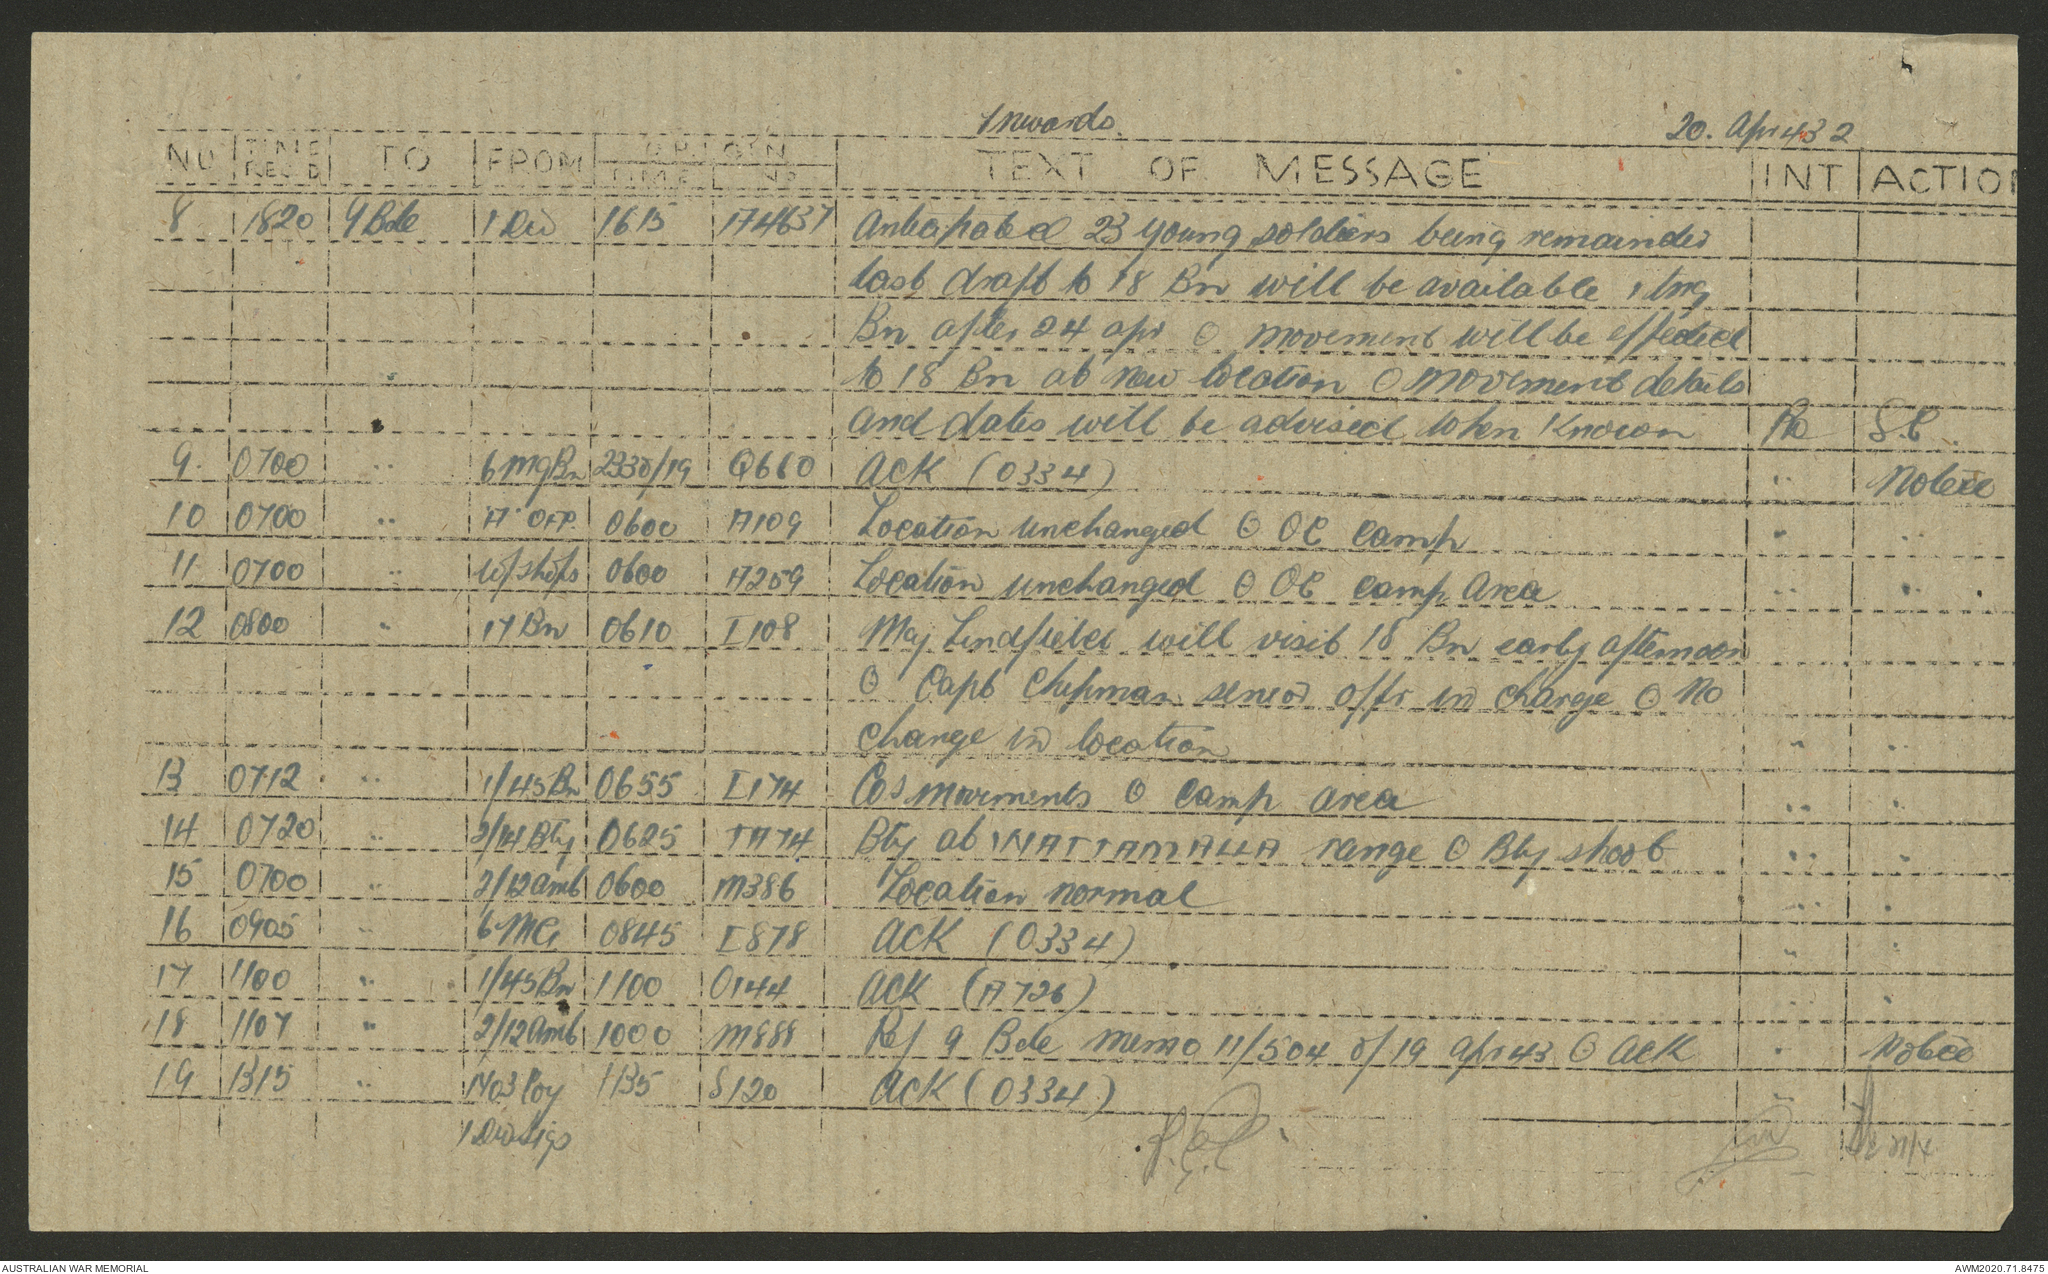 Inwards.
20. Apr 43 2
NO TIME REC'D TO FROM ORIGIN TIME NO TEXT OF MESSAGE INT ACTION
8 1820 9 Bde 1 Div 1615 174637 Anticipated 23 young soldiers being remainder
last draft to 18 Bn will be available 1 trng
Bn after 24 Apr O movement will be effected
to 18 Bn at new location O movement details
and dates will be advised when known S.C
9. 0700 " 6 MG Bn 2330/19 Q660 ACK (0334) " Noted
10 0700 " "A" 0600 A109 Location unchanged O OC Camp " "
11 0700 " W/shops 0600 A259 Location unchanged O OC Camp Area " "
12 0800 " 17 Bn 0610 I108 Maj Lindfield will visit 18 Bn early afternoon
O Capt Chipman senior offr in charge O No
change in location " "
13 0712 " 1/45 Bn 0655 I174 COs movements O Camp area " "
14 0720 " 2/14 Bty 0625 TA74 Bty at WATTAMALLA range O Bty shoot " "
15 0700 " 2/12 Amb 0600 M386 Location normal " "
16 0905 " 6 MG 0845 I878 ACK (0334) " "
17 1100 " 1/45 Bn 1100 O144 ACK (A726) " "
18 1107 " 2/12 Amb 1000 M888 Ref 9 Bde memo 11/504 of 19 Apr 43 O ACK " Noted
19 1315 " No 3 Coy 1135 S120 ACK (0334) "
1 Div Sigs
21/4
AUSTRALIAN WAR MEMORIAL
AWM2020.71.8475